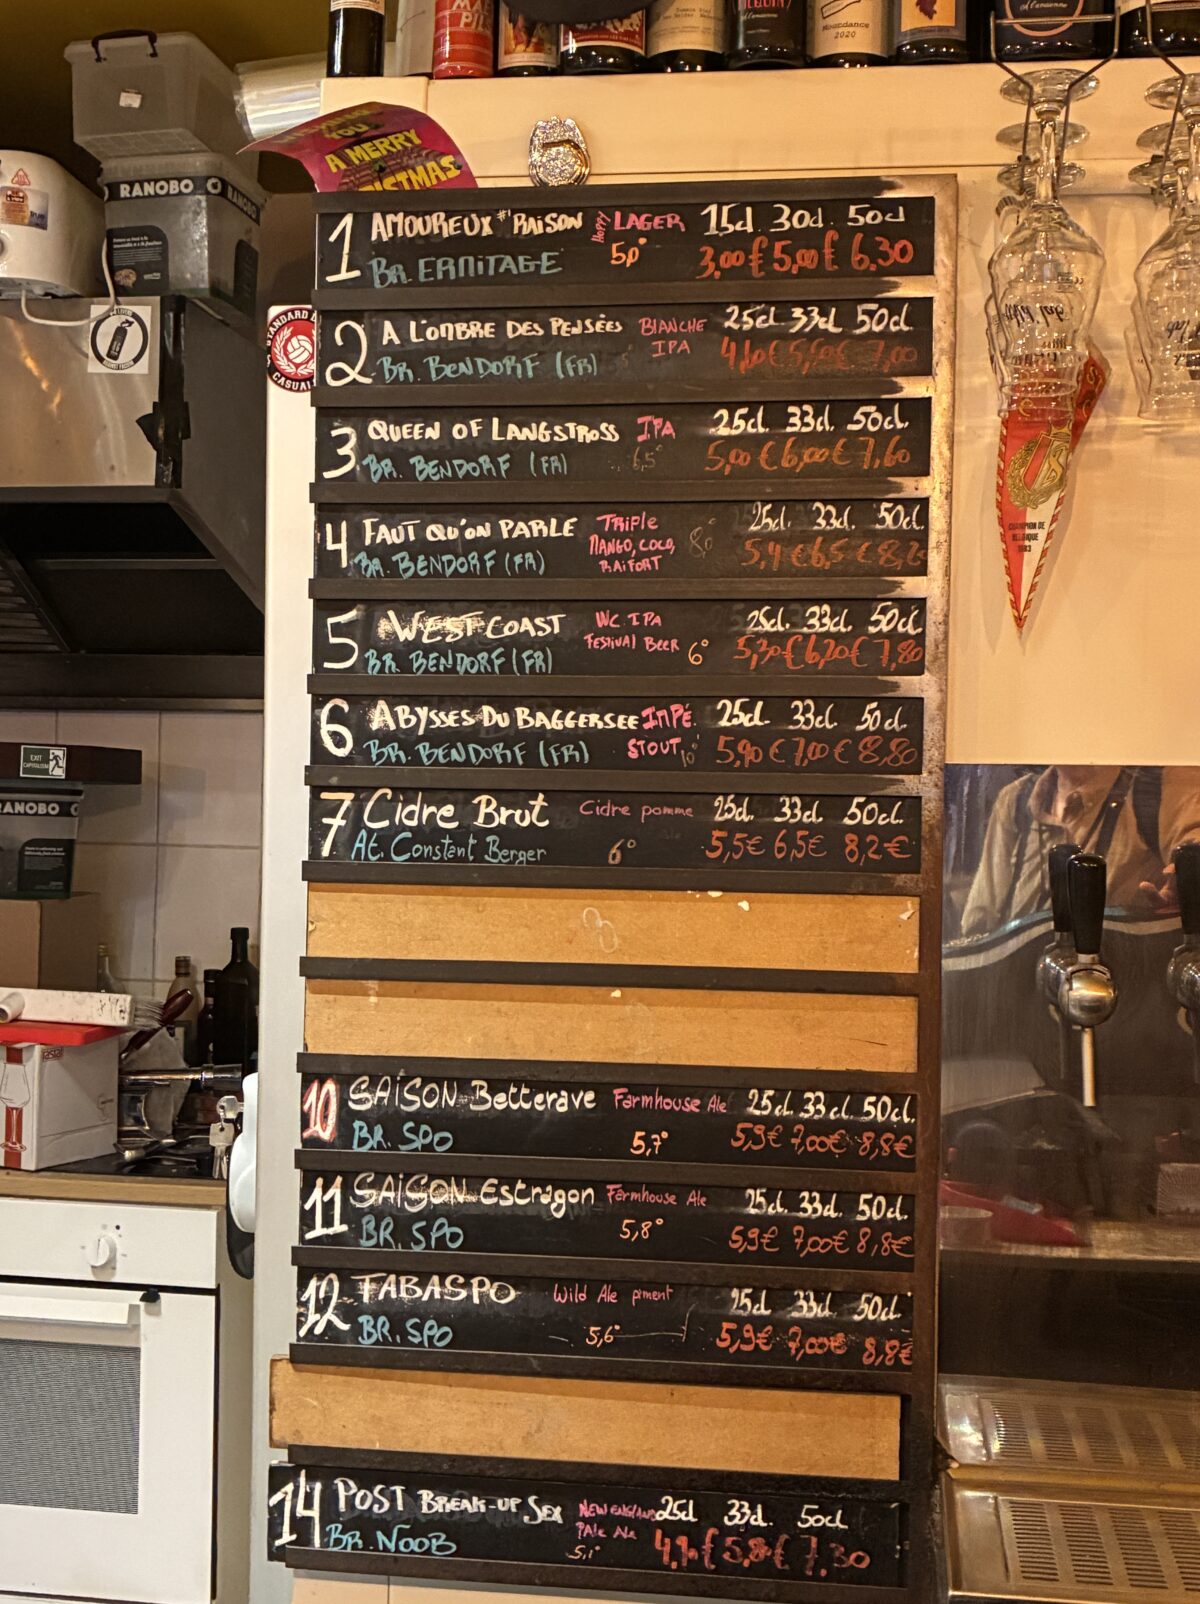 A MERRY
RANOBO
Moondance
2020
1 AMOUREUX #1 RAISON HOPPY LAGER 15cl 30cl. 50cl
BR. ERMITAGE 5,0° 3,00€ 5,00€ 6.30
2 A L'OMBRE DES PENSÉES BLANCHE IPA 25cl 33cl 50cl.
BR. BENDORF (FR) 7,00
3 QUEEN OF LANGSTROSS IPA 25cl. 33cl. 50cl.
BR. BENDORF (FR) 6,5° 5,00€ 6,00€ 7,60
4 FAUT QU'ON PARLE TRIPLE MANGO, COCO, RAIFORT 25cl. 33cl. 50cl.
BR. BENDORF (FR) 8,0° 5,4€ 6,5€ 8,2€
5 WEST COAST WC IPA FESTIVAL BEER 25cl. 33cl. 50cl.
BR. BENDORF (FR) 6° 5,30€ 6,20€ 7,80
6 ABYSSES DU BAGGERSEE IMPÉ. STOUT 25cl. 33cl. 50cl.
BR. BENDORF (FR) 10° 5,90€ 7,00€ 8,80
7 Cidre Brut Cidre pomme 25cl. 33cl. 50cl.
At. Constant Berger 6° 5,5€ 6,5€ 8,2€
10 SAISON Betterave Farmhouse Ale 25cl. 33cl. 50cl.
BR. SPO 5,7° 5,9€ 7,00€ 8,8€
11 SAISON Estragon Farmhouse Ale 25cl. 33cl. 50cl.
BR. SPO 5,8° 5,9€ 7,00€ 8,8€
12 TABASPO Wild Ale piment 25cl 33cl. 50cl.
BR. SPO 5,6° 5,9€ 7,00€ 8,8€
14 POST BREAK-UP SEX NEW ENGLAND PALE ALE 25cl 33cl. 50cl
BR. NOOB 5,1° 4,90€ 5,80€ 7.30
STANDARD
CASUAL
CHAMPION DE
BELGIQUE
1983
EXIT
CAPITALISM
RANOBO